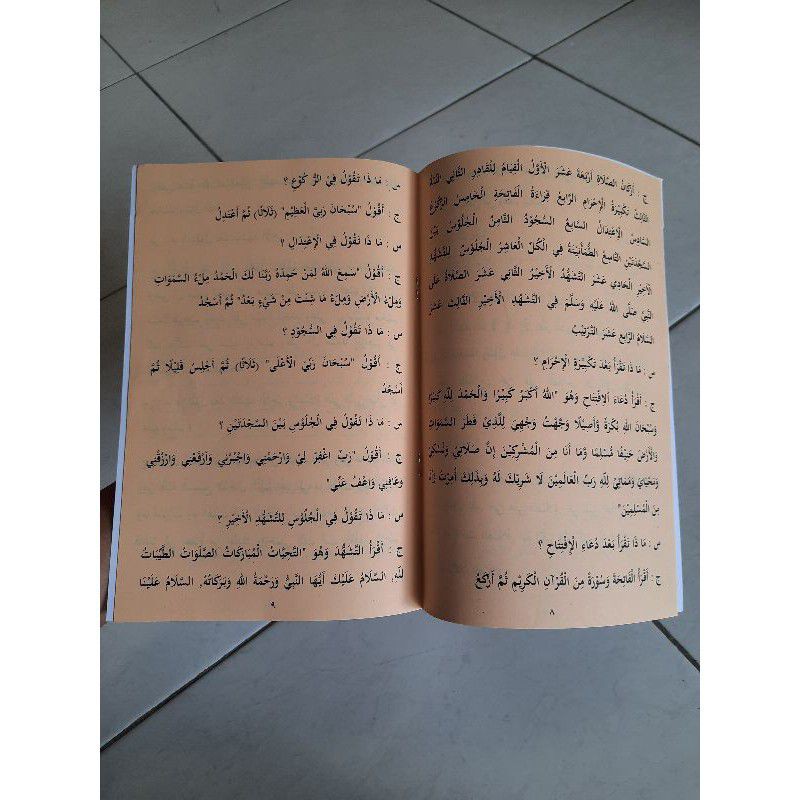 ج : أَرْكَانُ الصَّلَاةِ أَرْبَعَةَ عَشَرَ الْأَوَّلُ الْقِيَامُ لِلْقَادِرِ الثَّانِي
الثَّالِثُ تَكْبِيْرَةُ الْإِحْرَامِ الرَّابِعُ قِرَاءَةُ الْفَاتِحَةِ الْخَامِسُ الرُّكُوْعُ
السَّادِسُ الْإِعْتِدَالُ السَّابِعُ السُّجُوْدُ الثَّامِنُ الْجُلُوْسُ بَيْنَ
السَّجْدَتَيْنِ التَّاسِعُ الطُّمَأْنِيْنَةُ فِي الْكُلِّ الْعَاشِرُ الْجُلُوْسُ لِلتَّشَهُّدِ
الْأَخِيْرِ الْحَادِي عَشَرَ التَّشَهُّدُ الْأَخِيْرُ الثَّانِي عَشَرَ الصَّلَاةُ عَلَى
النَّبِيِّ صَلَّى اللهُ عَلَيْهِ وَسَلَّمَ فِي التَّشَهُّدِ الْأَخِيْرِ الثَّالِثَ عَشَرَ
السَّلَامُ الرَّابِعَ عَشَرَ التَّرْتِيْبُ
س : مَا ذَا تَقْرَأُ بَعْدَ تَكْبِيْرَةِ الْإِحْرَامِ ؟
ج : أَقْرَأُ دُعَاءَ الْاِفْتِتَاحِ وَهُوَ "اللهُ أَكْبَرُ كَبِيْرًا وَالْحَمْدُ لِلّٰهِ كَثِيْرًا
وَسُبْحَانَ اللهِ بُكْرَةً وَأَصِيْلًا وَجَّهْتُ وَجْهِيَ لِلَّذِيْ فَطَرَ السَّمَوَاتِ
وَالْأَرْضَ حَنِيْفًا مُسْلِمًا وَّمَا أَنَا مِنَ الْمُشْرِكِيْنَ إِنَّ صَلَاتِيْ وَنُسُكِيْ
وَمَحْيَايَ وَمَمَاتِيْ لِلّٰهِ رَبِّ الْعَالَمِيْنَ لَا شَرِيْكَ لَهُ وَبِذَلِكَ أُمِرْتُ وَأَنَا
مِنَ الْمُسْلِمِيْنَ"
س : مَا ذَا تَقْرَأُ بَعْدَ دُعَاءِ الْإِفْتِتَاحِ ؟
ج : أَقْرَأُ الْفَاتِحَةَ وَسُوْرَةً مِنَ الْقُرْآنِ الْكَرِيْمِ ثُمَّ أَرْكَعُ
٨
س : مَا ذَا تَقُوْلُ فِي الرُّ كُوْعِ ؟
ج : أَقُوْلُ "سُبْحَانَ رَبِّيَ الْعَظِيْمِ" (ثَلَاثًا) ثُمَّ أَعْتَدِلُ
س : مَا ذَا تَقُوْلُ فِي الْإِعْتِدَالِ ؟
ج : أَقُوْلُ "سَمِعَ اللهُ لِمَنْ حَمِدَهُ رَبَّنَا لَكَ الْحَمْدُ مِلْءُ السَّمَوَاتِ
وَمِلْءُ الْأَرْضِ وَمِلْءُ مَا شِئْتَ مِنْ شَيْءٍ بَعْدُ" ثُمَّ أَسْجُدُ
س : مَا ذَا تَقُوْلُ فِي السُّجُوْدِ ؟
ج : أَقُوْلُ "سُبْحَانَ رَبِّيَ الْأَعْلَى" (ثَلَاثًا) ثُمَّ أَجْلِسُ قَلِيْلًا ثُمَّ
أَسْجُدُ
س : مَا ذَا تَقُوْلُ فِي الْجُلُوْسِ بَيْنَ السَّجْدَتَيْنِ ؟
ج : أَقُوْلُ "رَبِّ اغْفِرْ لِيْ وَارْحَمْنِي وَاجْبُرْنِي وَارْفَعْنِي وَارْزُقْنِي
وَعَافِنِي وَاعْفُ عَنِّي"
س : مَا ذَا تَقُوْلُ فِي الْجُلُوْسِ لِلتَّشَهُّدِ الْأَخِيْرِ ؟
ج : أَقْرَأُ التَّشَهُّدَ وَهُوَ "التَّحِيَّاتُ الْمُبَارَكَاتُ الصَّلَوَاتُ الطَّيِّبَاتُ
لِلّٰهِ, السَّلَامُ عَلَيْكَ أَيُّهَا النَّبِيُّ وَرَحْمَةُ اللهِ وَبَرَكَاتُهُ, السَّلَامُ عَلَيْنَا
٩